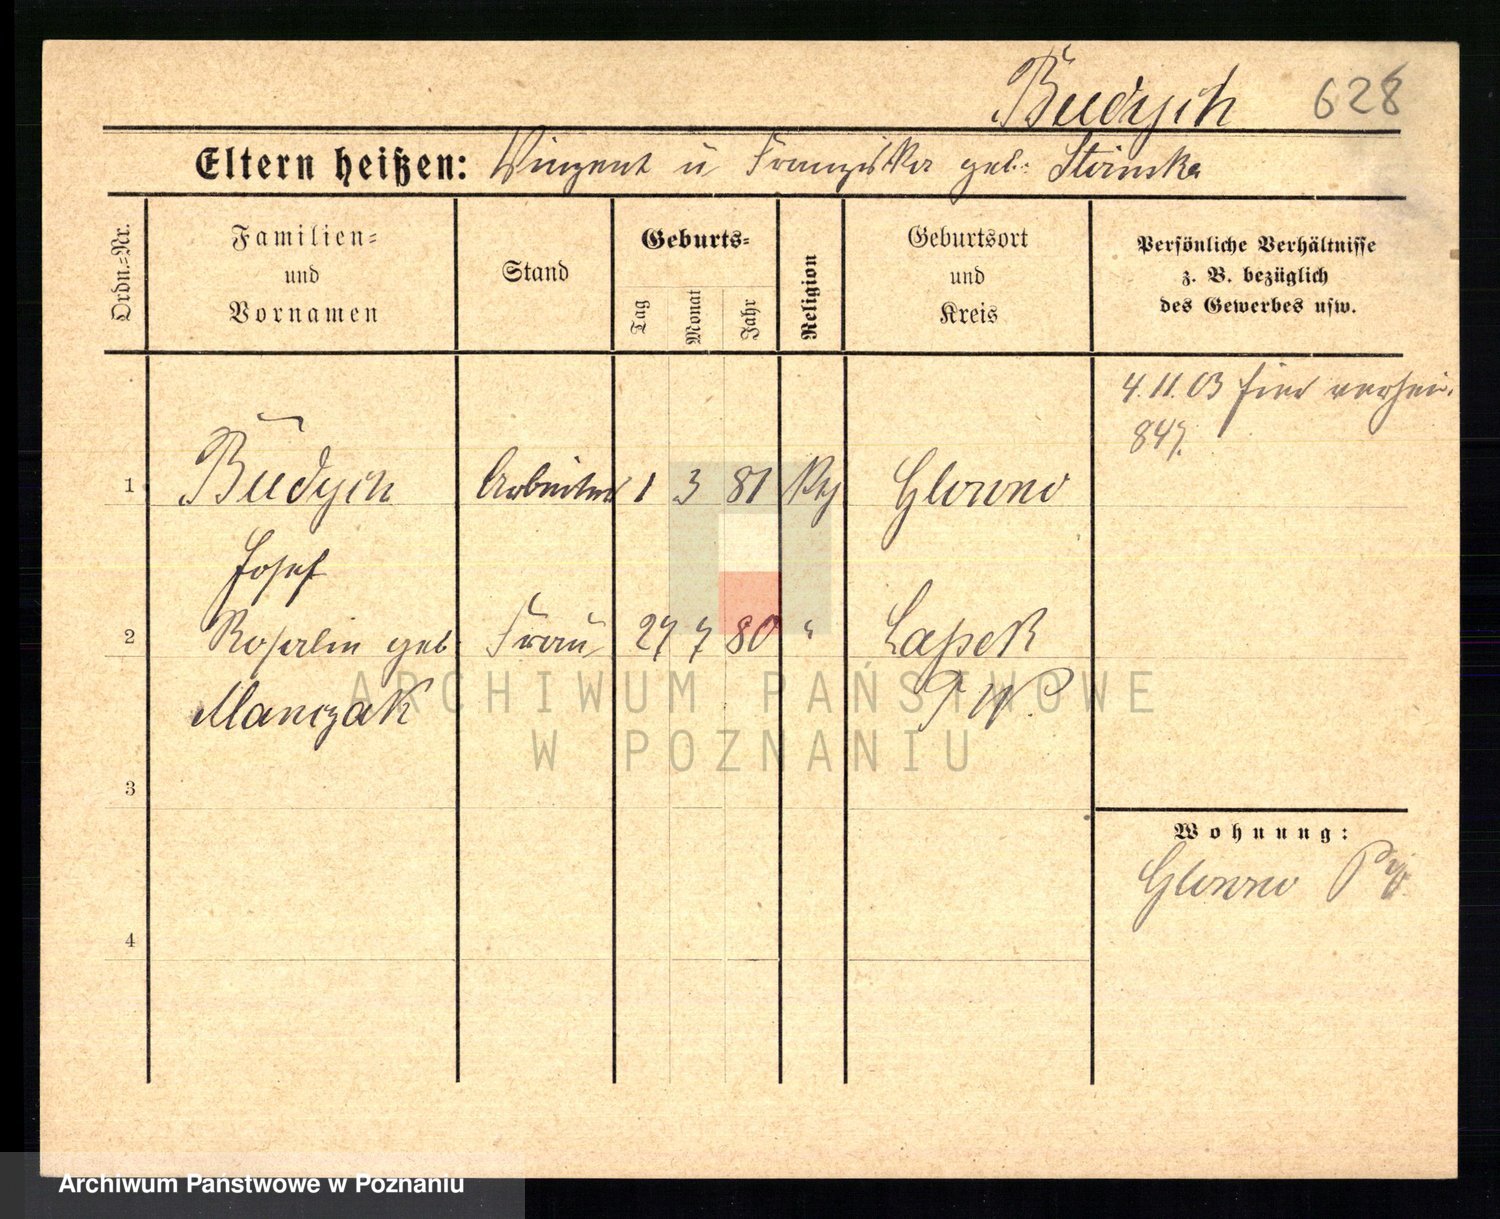 Budych 628
Eltern heißen: Vinzent u Franziska geb. Stóinska
Ordn.-Nr.
Familien-
und
Vornamen
Stand
Geburts-
Tag
Monat
Jahr
Religion
Geburtsort
und
Kreis
Persönliche Verhältnisse
z. B. bezüglich
des Gewerbes usw.
4. 11. 03 hier verhei.
847.
1 Budych Arbeiter 1 3 81 Glowno
Josef
2 Rosalie geb Frau 27 7 80 " Lapek
Manczak
ARCHIWUM PAŃSTWOWE
W POZNANIU
3
Wohnung:
Glowno
4
Archiwum Państwowe w Poznaniu